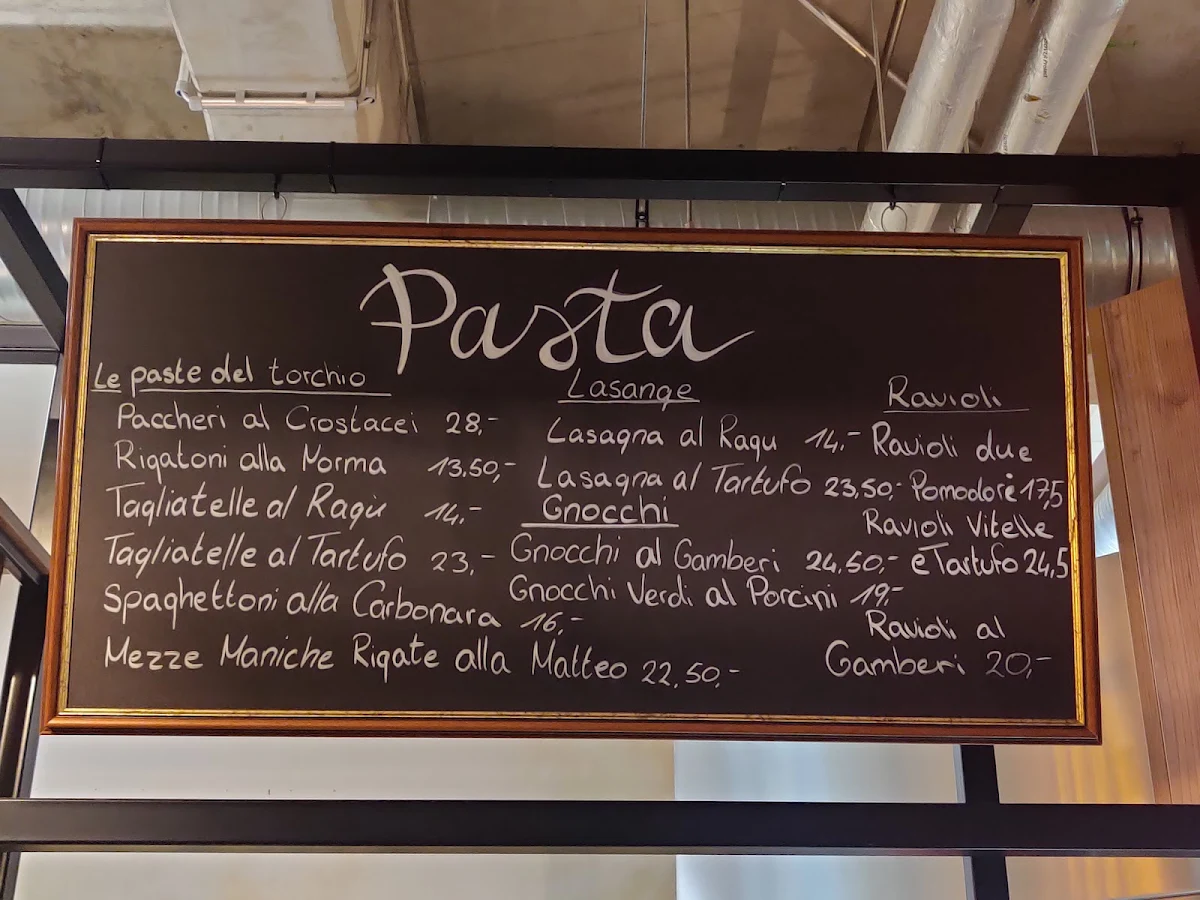 Pasta
Le paste del torchio
Paccheri al Crostacei 28,-
Rigatoni alla Norma 13,50,-
Tagliatelle al Ragù 14,-
Tagliatelle al Tartufo 23,-
Spaghettoni alla Carbonara 16,-
Mezze Maniche Rigate alla Matteo 22,50,-
Lasange
Lasagna al Ragu 14,-
Lasagna al Tartufo 23,50,-
Gnocchi
Gnocchi al Gamberi 24,50,-
Gnocchi Verdi al Porcini 19,-
Ravioli
Ravioli due
Pomodore 17,5
Ravioli Vitelle
e Tartufo 24,5
Ravioli al
Gamberi 20,-